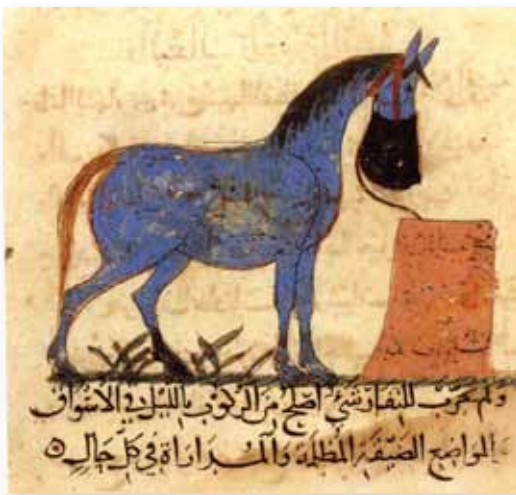 ولم يجرب للنفار شئ اصلح من الركوب بالليل في الاسواق
والمواضع الضيقة المظلمة والمداراة في كل حال